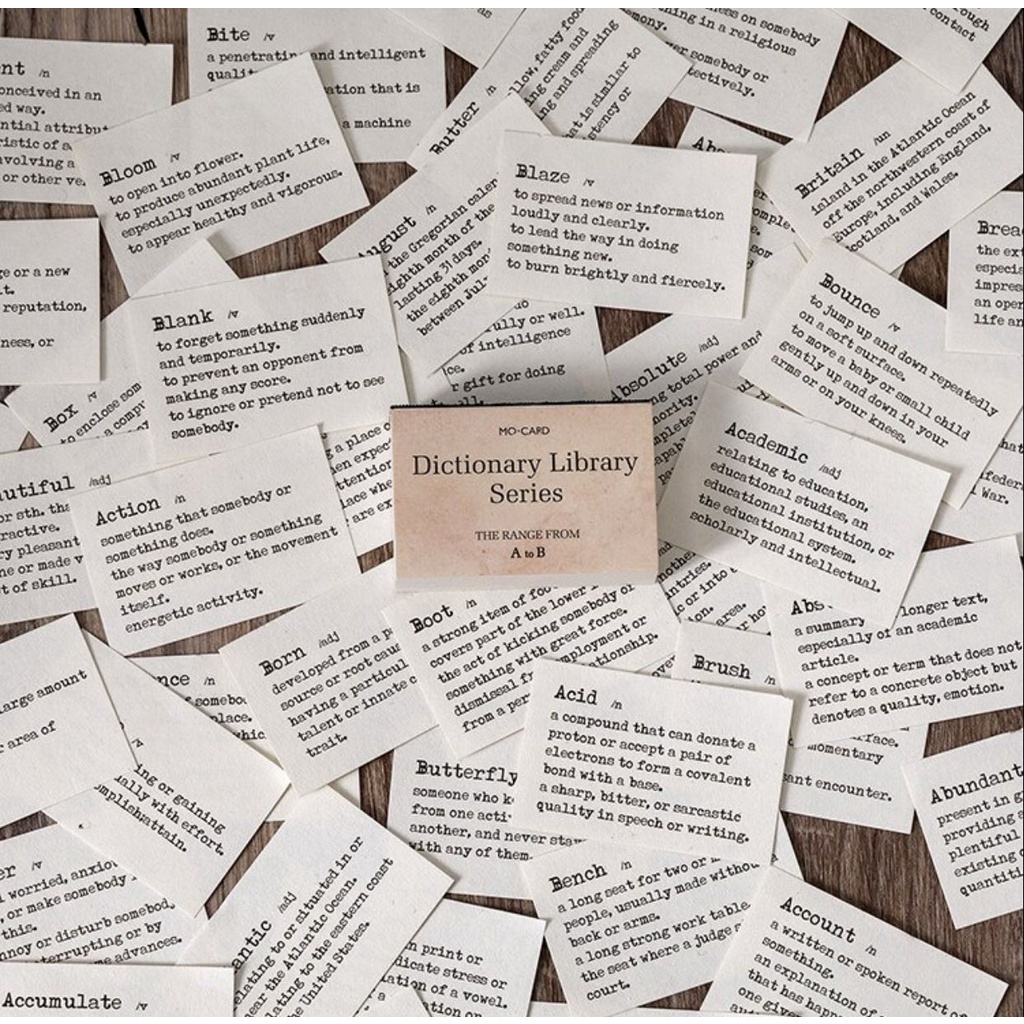 Bite /v
a penetrating and intelligent
a machine
ent /n
conceived in an
ed way.
or other
Bloom /v
to open into flower.
to produce abundant plant life,
especially unexpectedly.
to appear healthy and vigorous.
Butter /n
fatty food
ing cream and
ing and spreading
that is similar to
on somebody
in a religious
somebody or
Britain /un
island in the Atlantic Ocean
off the northwestern coast of
Europe, including England,
Scotland, and Wales.
contact
Blaze /v
to spread news or information
loudly and clearly.
to lead the way in doing
something new.
to burn brightly and fiercely.
August /n
the Gregorian
eighth month of the
lasting 31 days.
the eighth
between
or a new
reputation,
or
Blank /v
to forget something suddenly
and temporarily.
to prevent an opponent from
making any score.
to ignore or pretend not to see
somebody.
Bounce /v
to jump up and down repeatedly
on a soft surface.
to move a baby or small child
gently up and down in your
arms or on your knees.
or well.
of intelligence
gift for doing
Absolute /adj
total power and
Box /v
to enclose
MO-CARD
Dictionary Library
Series
THE RANGE FROM
A to B
Academic /adj
relating to education,
educational studies, an
educational institution, or
the education system.
scholarly and intellectual.
War.
/adj
or sth.
pleasant
or made
of skill.
Action /n
something that somebody or
something does.
the way somebody or something
moves or works, or the movement
itself.
energetic activity.
a place
Boot /n
a strong item of
covers part of the lower
the act of kicking somebody or
something with great force.
dismissal
from a
Born /adj
developed from a
source or root
having a
talent or innate
trait.
a summary
longer text,
especially of an academic
article.
a concept or term that does not
refer to a concrete object but
denotes a quality, emotion.
Brush /n
encounter.
Acid /n
a compound that can donate a
proton or accept a pair of
electrons to form a covalent
bond with a base.
a sharp, bitter, or sarcastic
quality in speech or writing.
amount
area of
or gaining
with effort.
Butterfly
someone who
from one
another, and never
with any of them.
Abundant
present in
providing
plentiful
existing
Bench /n
a long seat for two or
people, usually made without
back or arms.
a long strong work table.
the seat where a judge
court.
Account /n
a written or spoken report of
something.
an explanation of
that has
one
worried,
or make somebody
this.
or disturb
or by
advances.
/adj
to or situated in or
near the Atlantic Ocean.
to the eastern coast
United States.
print or
stress or
of a vowel.
Accumulate /v